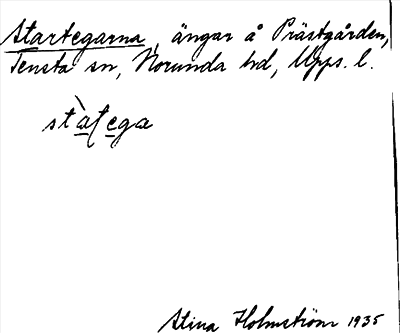 Startegarna, ängar å Prästgården,
Tensta sn, Norunda hd, Upps. l.
Stina Holmström 1935